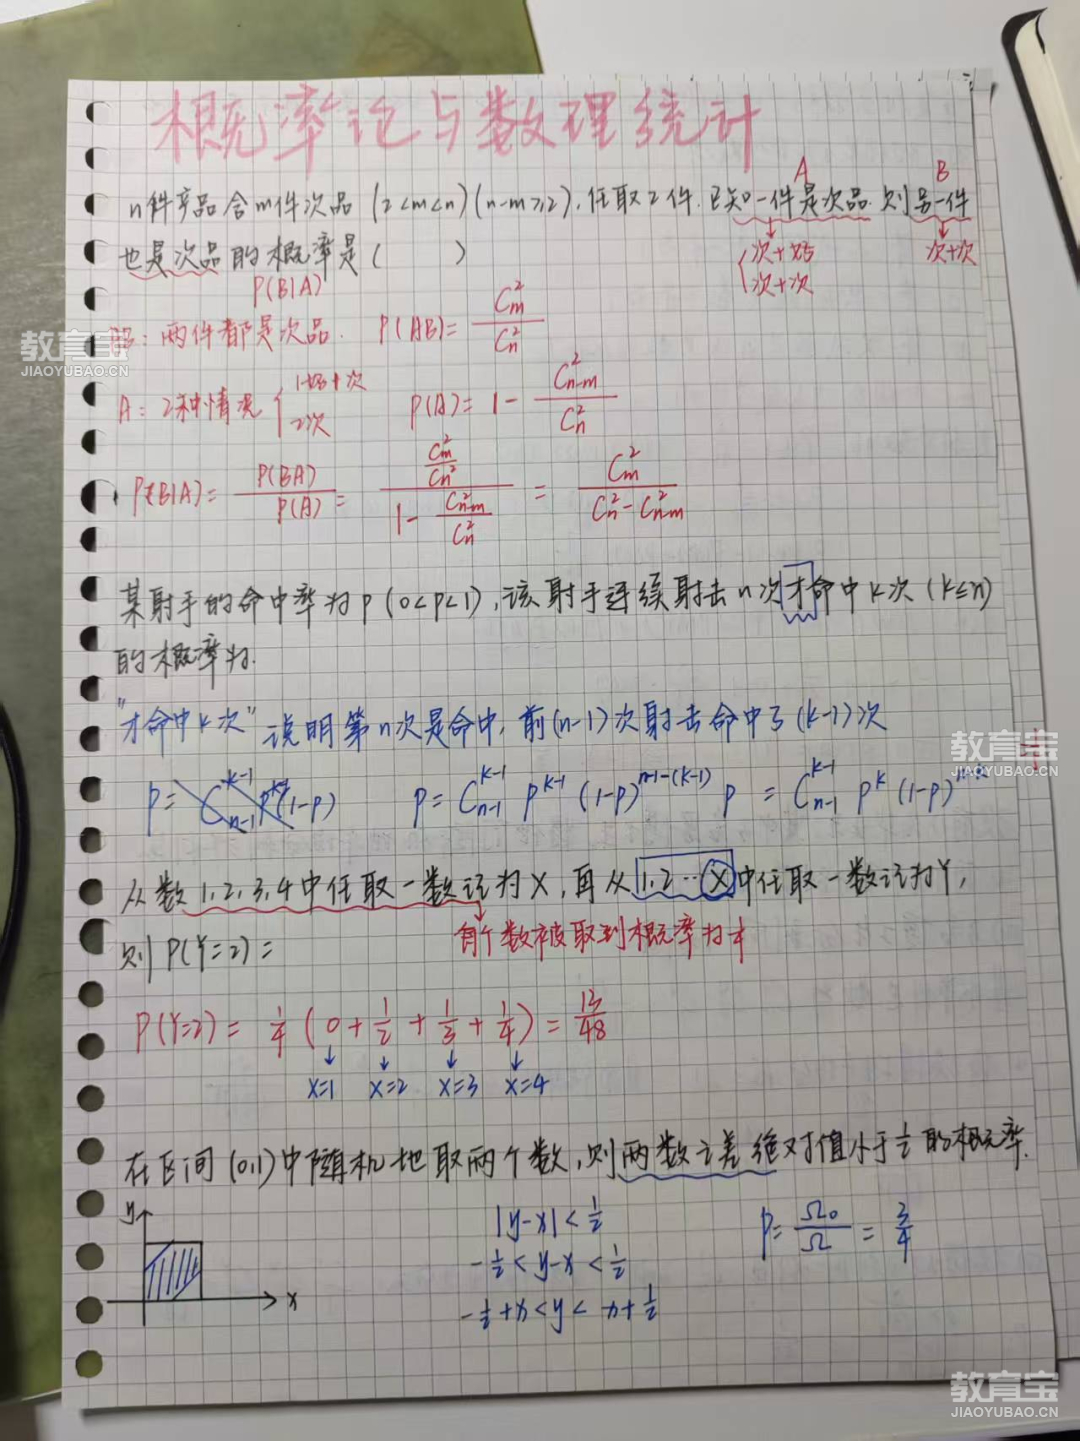 概率论与数理统计
A B
n件产品含m件次品 (2<m<n)(n-m≥2),任取2件.已知一件是次品.则另一件
次+好 次+次
也是次品的概率是( )
次+次
P(B|A)
AB:两件都是次品. P(AB)= C_m^2 / C_n^2
教育宝
JIAOYUBAO.CN
A:2种情况 { 1好1次 P(A)=1- C_{n-m}^2 / C_n^2
2次
P(B|A)= P(BA)/P(A) = (C_m^2/C_n^2) / (1- C_{n-m}^2/C_n^2) = C_m^2 / (C_n^2-C_{n-m}^2)
某射手的命中率为p(0<p<1),该射手连续射击n次才命中k次(k≤n)
的概率为.
"才命中k次"说明第n次是命中,前(n-1)次射击命中了(k-1)次
教育宝
JIAOYUBAO.CN
p= C_{n-1}^{k-1} (1-p) p= C_{n-1}^{k-1} p^{k-1} (1-p)^{n-1-(k-1)} p = C_{n-1}^{k-1} p^k (1-p)^{n-k}
从数1,2,3,4中任取一数记为X,再从1,2…X中任取一数记为Y,
每个数被取到概率为¼
则P(Y=2)=
P(Y=2)= 1/4 (0+1/2+1/3+1/4)= 13/48
x=1 x=2 x=3 x=4
在区间(0,1)中随机地取两个数,则两数之差绝对值小于½的概率.
y |y-x|<1/2 P= Ω₀/Ω = 3/4
-1/2<y-x<1/2
x -1/2+x<y<x+1/2
教育宝
JIAOYUBAO.CN